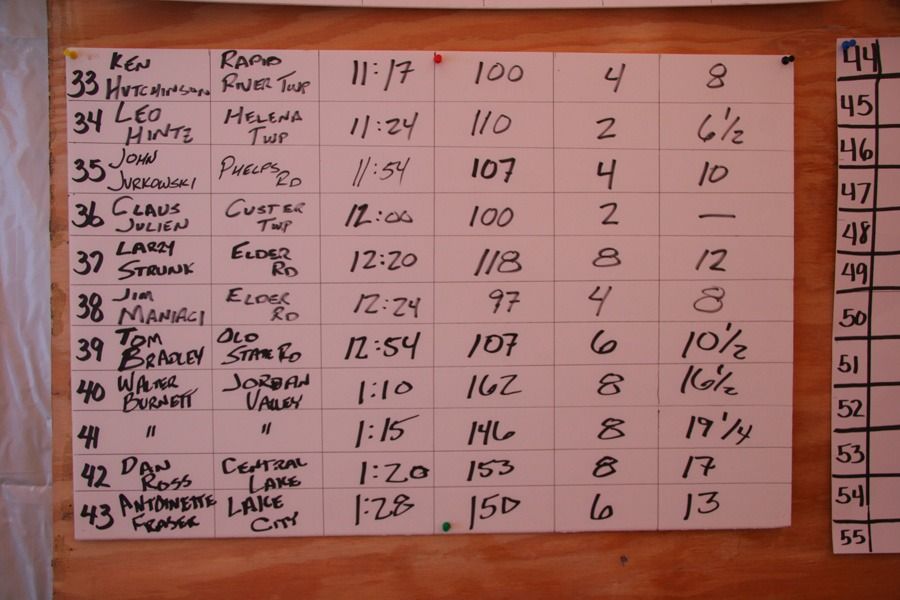 33 KEN HUTCHINSON RAPID RIVER TWP 11:17 100 4 8
34 LEO HINTZ HELENA TWP 11:24 110 2 6 1/2
35 JOHN JURKOWSKI PHELPS RD 11:54 107 4 10
36 CLAUS JULIEN CUSTER TWP 12:00 100 2 —
37 LARRY STRUNK ELDER RD 12:20 118 8 12
38 JIM MANIACI ELDER RD 12:24 97 4 8
39 TOM BRADLEY OLD STATE RD 12:54 107 6 10 1/2
40 WALTER BURNETT JORDAN VALLEY 1:10 162 8 16 1/2
41 " " 1:15 146 8 19 1/4
42 DAN ROSS CENTRAL LAKE 1:20 153 8 17
43 ANTOINETTE FRASER LAKE CITY 1:28 150 6 13
44
45
46
47
48
49
50
51
52
53
54
55